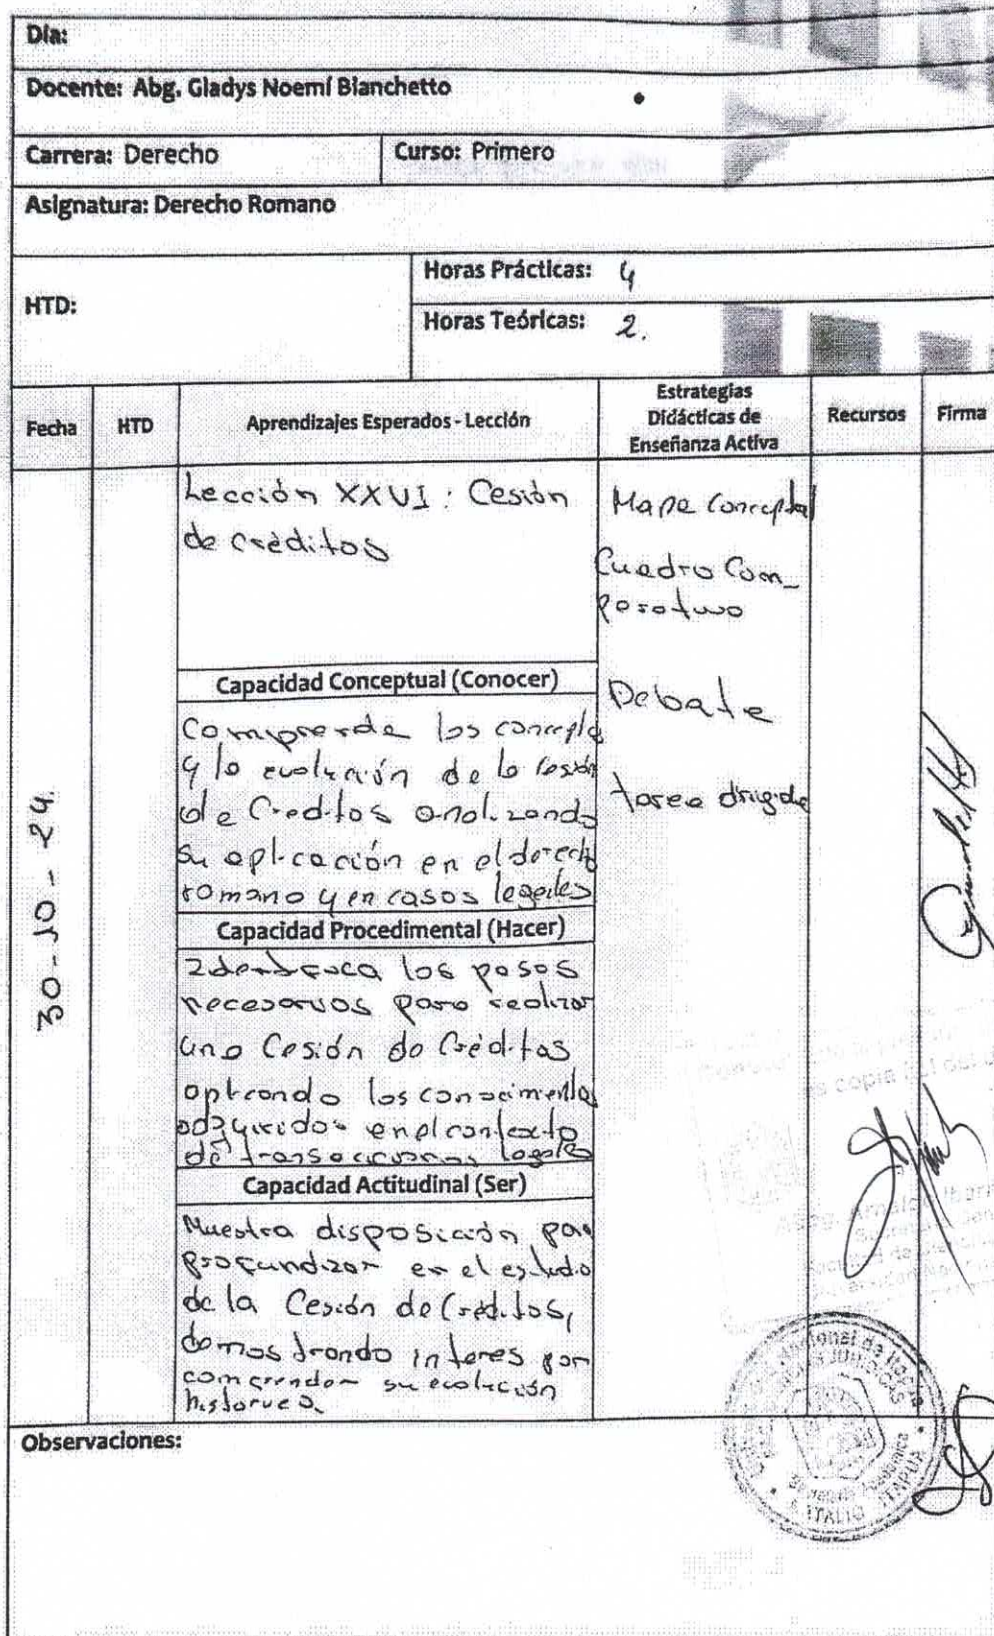 Día:
Docente: Abg. Gladys Noemí Bianchetto
Carrera: Derecho
Curso: Primero
Asignatura: Derecho Romano
HTD:
Horas Prácticas: 4
Horas Teóricas: 2.
Fecha
HTD
Aprendizajes Esperados - Lección
Estrategias
Didácticas de
Enseñanza Activa
Recursos
Firma
30-10-24.
Lección XXVI: Cesión
de créditos
Capacidad Conceptual (Conocer)
Comprende los concepto
y la evolución de la Cesión
de Creditos analizando
su aplicación en el derecho
romano y en casos legales
Capacidad Procedimental (Hacer)
Identifica los pasos
necesarios para realizar
una Cesión de Créditos
aplicando los conocimientos
adquiridos en el contexto
de transacciones legales
Capacidad Actitudinal (Ser)
Muestra disposición para
profundizar en el estudio
de la Cesión de Créditos,
demostrando interes por
comprender su evolución
historica.
Mapa Conceptual
Cuadro Com_
parativo
Debate
tarea dirigida
es copia
Observaciones:
ITAPUA